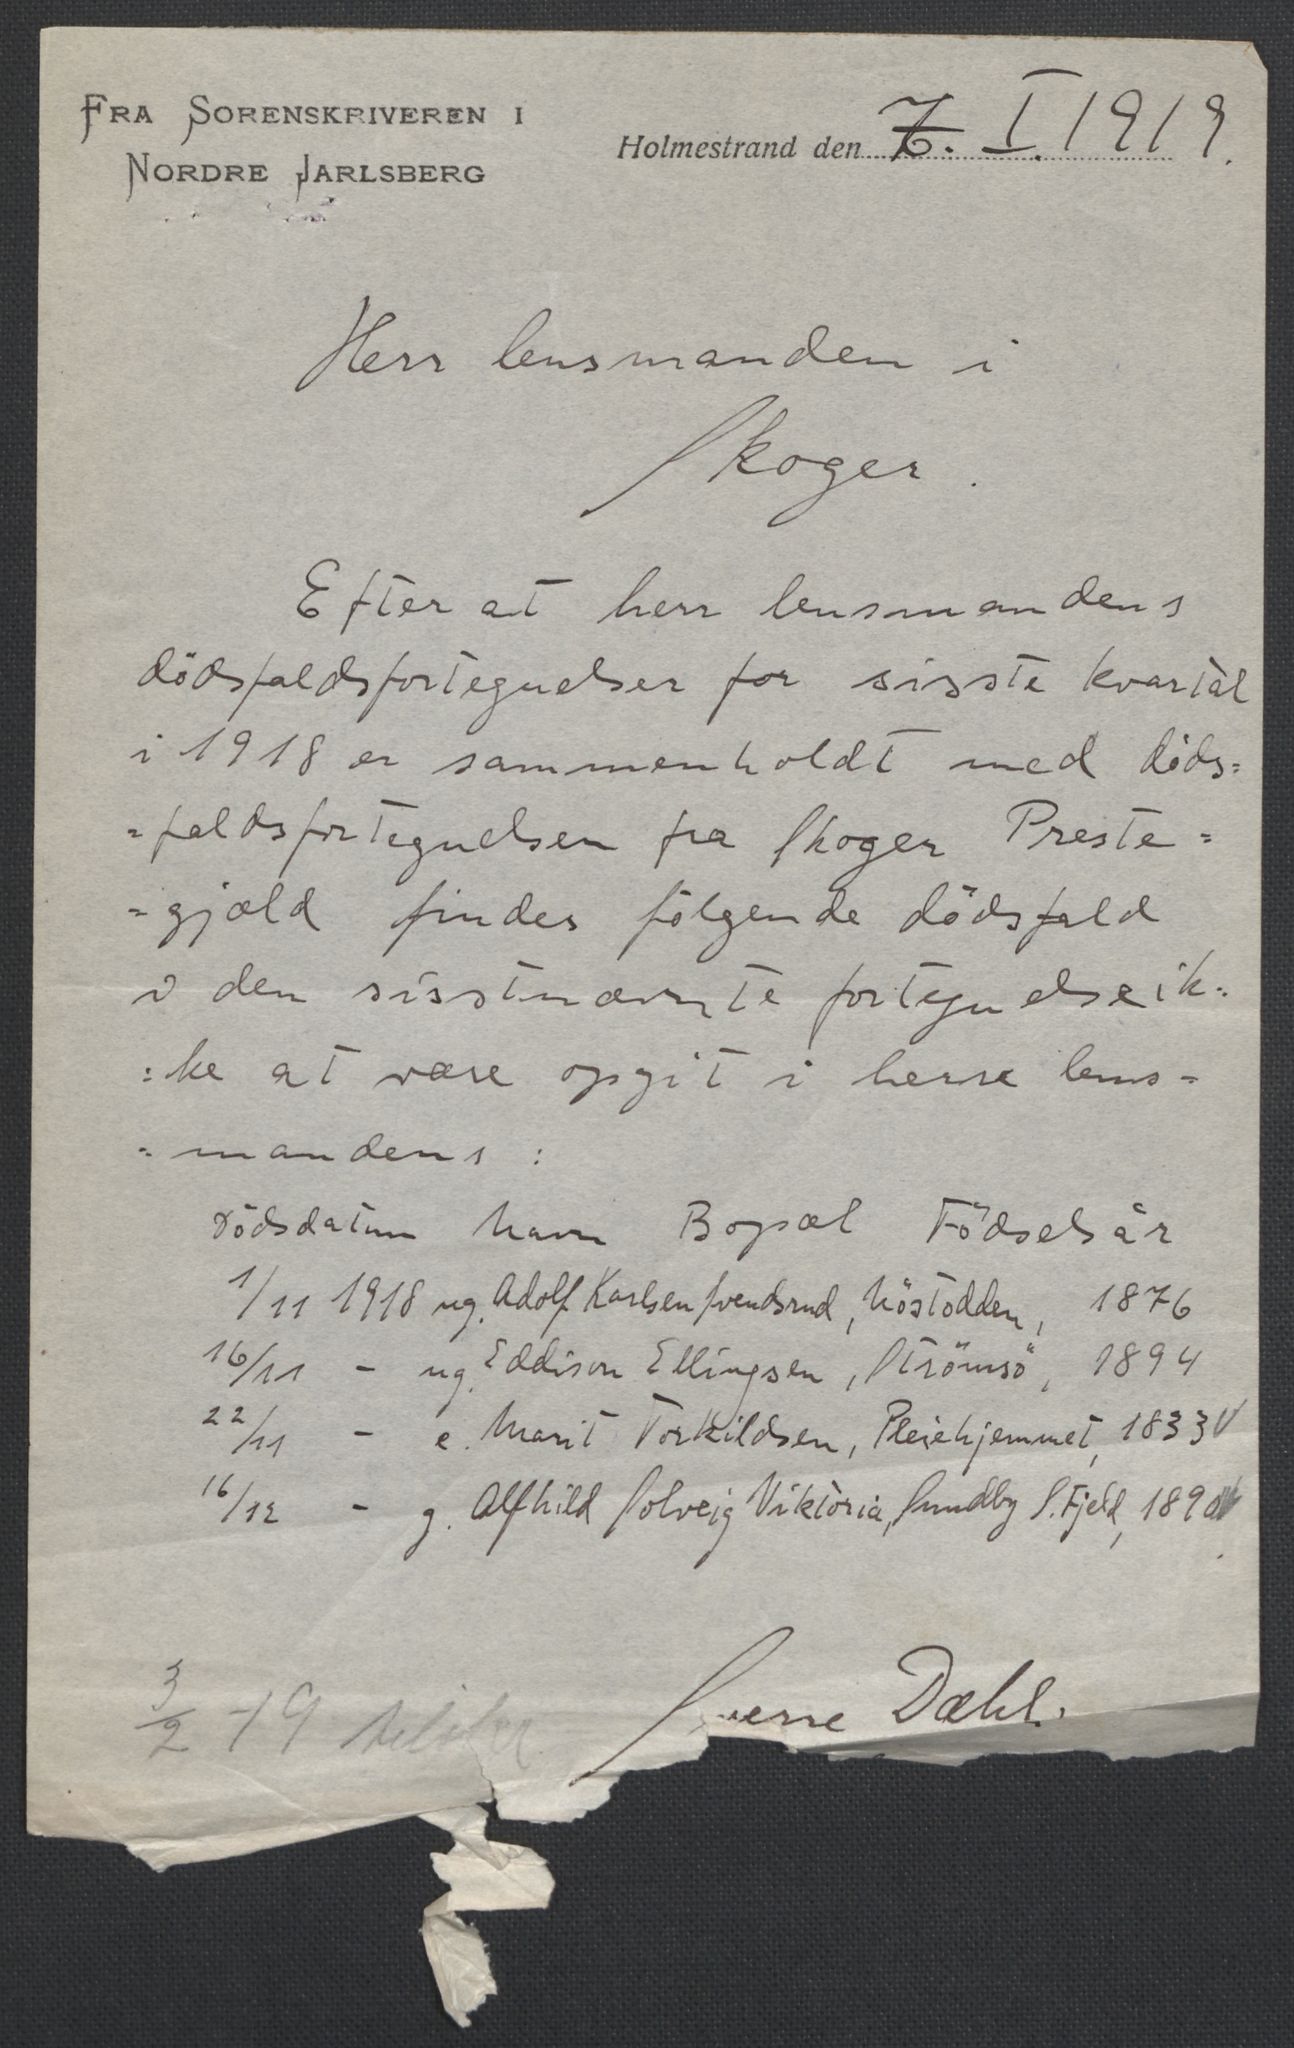 FRA SORENSKRIVEREN I
NORDRE JARLSBERG
Holmestrand den 7. I. 1919.
Herr lensmanden i
Skoger.
Efter at herr lensmandens
dödsfaldsfortegnelser for sisste kvartal
i 1918 er sammenholdt med döds=
=faldsfortegnelsen fra Skoger Preste=
=gjæld findes følgende dödsfald
i den sisstnævnte fortegnelse ik=
=ke at være opgit i herre lens=
=mandens:
Dödsdatum Navn Bopæl Födselsår
1/11 1918 ug. Adolf Karlsen Svendsrud, Nöstodden, 1876
16/11 - ug. Eddison Ellingsen, Strömsö, 1894
22/11 - e. Marit Torkildsen, Pleiehjemmet, 1833 V
16/12 - g. Alfhild Solveig Viktoria, Sundby S. Fjeld, 1890
Sverre Dæhl.
3/2 - 19